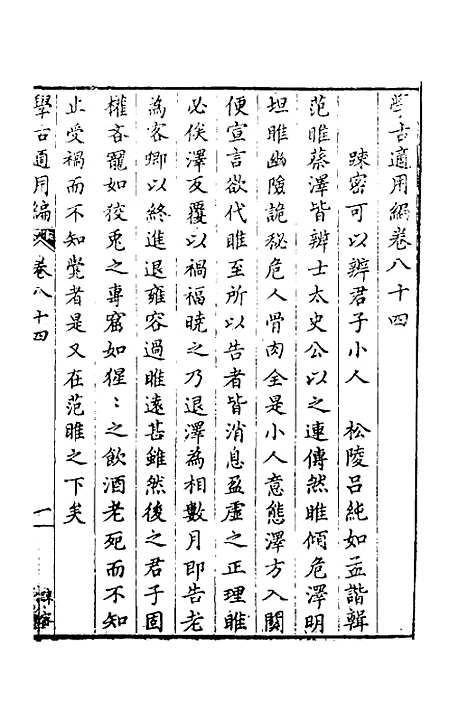 學古適用編卷八十四
踈密可以辨君子小人　松陵吕純如益諧輯
范睢蔡澤皆辨士太史公以之連傳然睢傾危澤明
坦睢幽險詭秘危人骨肉全是小人意態澤方入關
便宣言欲代睢至所以告者皆消息盈虛之正理睢
必俟澤反覆以禍福曉之乃退澤為相數月即告老
為客卿以終進退雍容過睢遠甚雖然後之君子固
權吝寵如狡兎之專窟如猩〻之飲酒老死而不知
止受禍而不知覺者是又在范睢之下矣
學古適用編
卷八十四
一